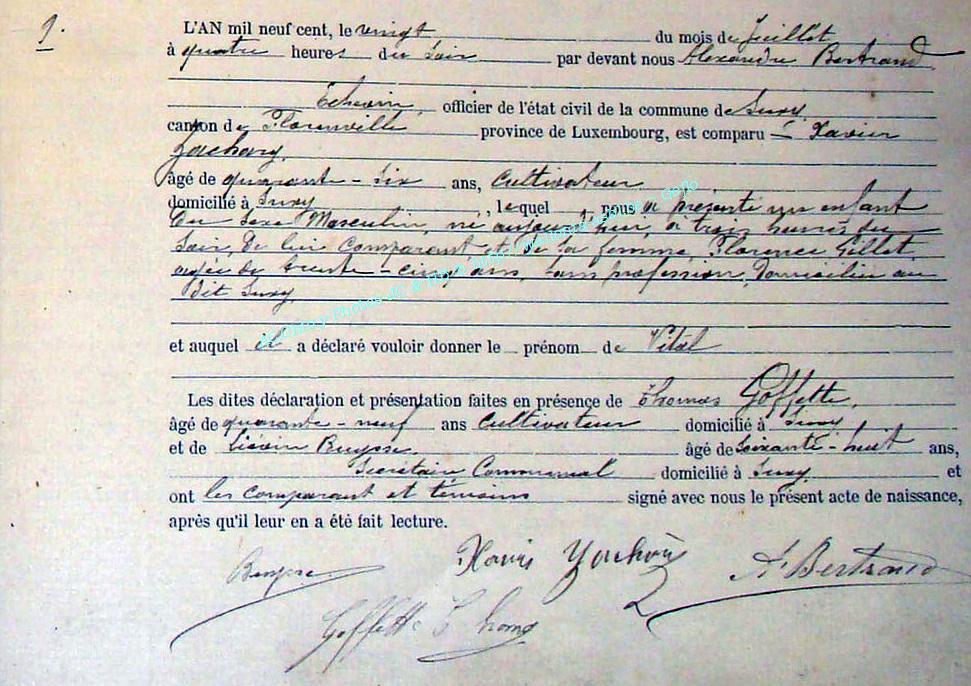 9.
L'AN mil neuf cent, le vingt du mois de Juillet
à quatre heures du soir par devant nous Alexandre Bertrand
Echevin, officier de l'état civil de la commune de Suxy,
canton de Florenville province de Luxembourg, est comparu Xavier
Zachary,
âgé de quarante-six ans, Cultivateur
domicilié à Suxy, lequel nous a présenté un enfant
du sexe Masculin, né aujourd'hui, à trois heures du
soir, de lui comparant et de sa femme, Florence Gillet,
agée de trente-cinq ans, sans profession, domiciliée au
dit Suxy
et auquel il a déclaré vouloir donner le prénom de Vital
Les dites déclaration et présentation faites en présence de Thomas Goffette,
âgé de quarante-neuf ans Cultivateur domicilié à Suxy
et de Liévin Buysse, âgé de soixante-huit ans,
Secrétaire Communal domicilié à Suxy et
ont les comparant et témoins signé avec nous le présent acte de naissance,
après qu'il leur en a été fait lecture.
Buysse Xavier A. Bertrand
Goffette Thomas